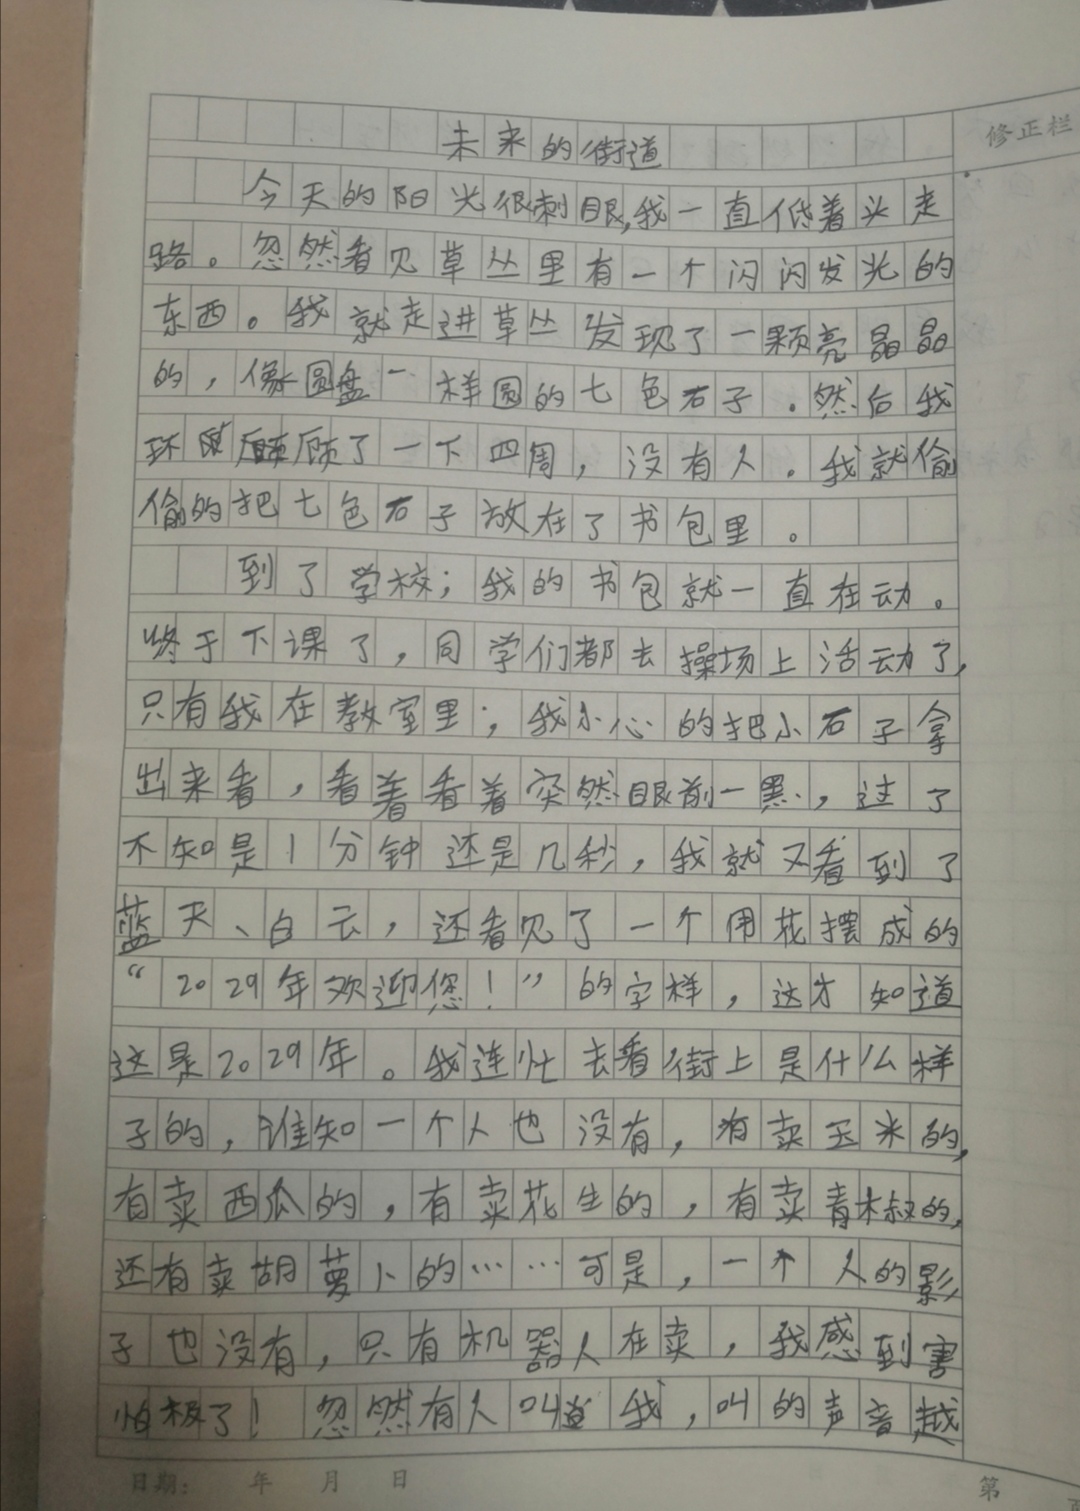 未来的街道
修正栏
今天的阳光很刺眼,我一直低着头走
路。忽然看见草丛里有一个闪闪发光的
东西。我就走进草丛发现了一颗亮晶晶
的，像圆盘一样圆的七色石子。然后我
环顾了一下四周，没有人。我就偷
偷的把七色石子放在了书包里。
到了学校；我的书包就一直在动。
终于下课了，同学们都去操场上活动了,
只有我在教室里；我小心的把小石子拿
出来看，看着看着突然眼前一黑，过了
不知是1分钟还是几秒，我就又看到了
蓝天、白云，还看见了一个用花摆成的
“2029年欢迎您！”的字样，这才知道
这是2029年。我连忙去看街上是什么样
子的，谁知一个人也没有，有卖玉米的,
有卖西瓜的，有卖花生的，有卖青椒的,
还有卖胡萝卜的……可是，一个人的影
子也没有，只有机器人在卖，我感到害
怕极了！忽然有人叫道我，叫的声音越
日期： 年 月 日
第